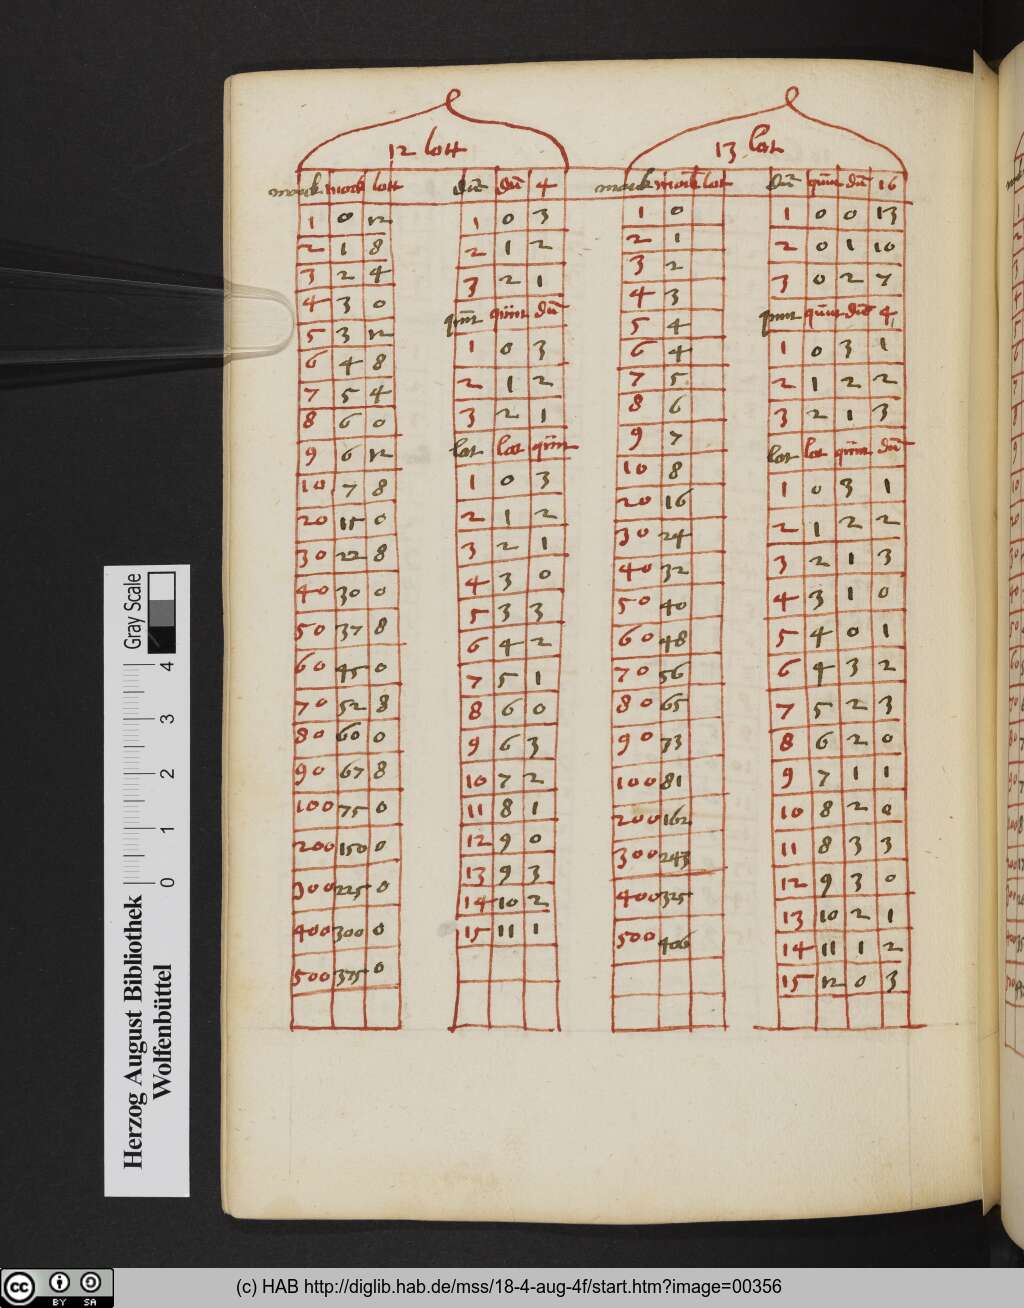 12 lott
marck mark lott
1 0 12
2 1 8
3 2 4
4 3 0
5 3 12
6 4 8
7 5 4
8 6 0
9 6 12
10 7 8
20 15 0
30 22 8
40 30 0
50 37 8
60 45 0
70 52 8
80 60 0
90 67 8
100 75 0
200 150 0
300 225 0
400 300 0
500 375 0
dñ dñ 4
1 0 3
2 1 2
3 2 1
quint quint dñ
1 0 3
2 1 2
3 2 1
lot lot quint
1 0 3
2 1 2
3 2 1
4 3 0
5 3 3
6 4 2
7 5 1
8 6 0
9 6 3
10 7 2
11 8 1
12 9 0
13 9 3
14 10 2
15 11 1
13 lot
marck mark lot
1 0
2 1
3 2
4 3
5 4
6 4
7 5
8 6
9 7
10 8
20 16
30 24
40 32
50 40
60 48
70 56
80 65
90 73
100 81
200 162
300 243
400 325
500 406
dñ quint dñ 16
1 0 0 13
2 0 1 10
3 0 2 7
quint quint dñ 4
1 0 3 1
2 1 2 2
3 2 1 3
lot lot quint dñ
1 0 3 1
2 1 2 2
3 2 1 3
4 3 1 0
5 4 0 1
6 4 3 2
7 5 2 3
8 6 2 0
9 7 1 1
10 8 2 0
11 8 3 3
12 9 3 0
13 10 2 1
14 11 1 2
15 12 0 3
Gray Scale
0 1 2 3 4
Herzog August Bibliothek
Wolfenbüttel
cc BY SA
(c) HAB http://diglib.hab.de/mss/18-4-aug-4f/start.htm?image=00356